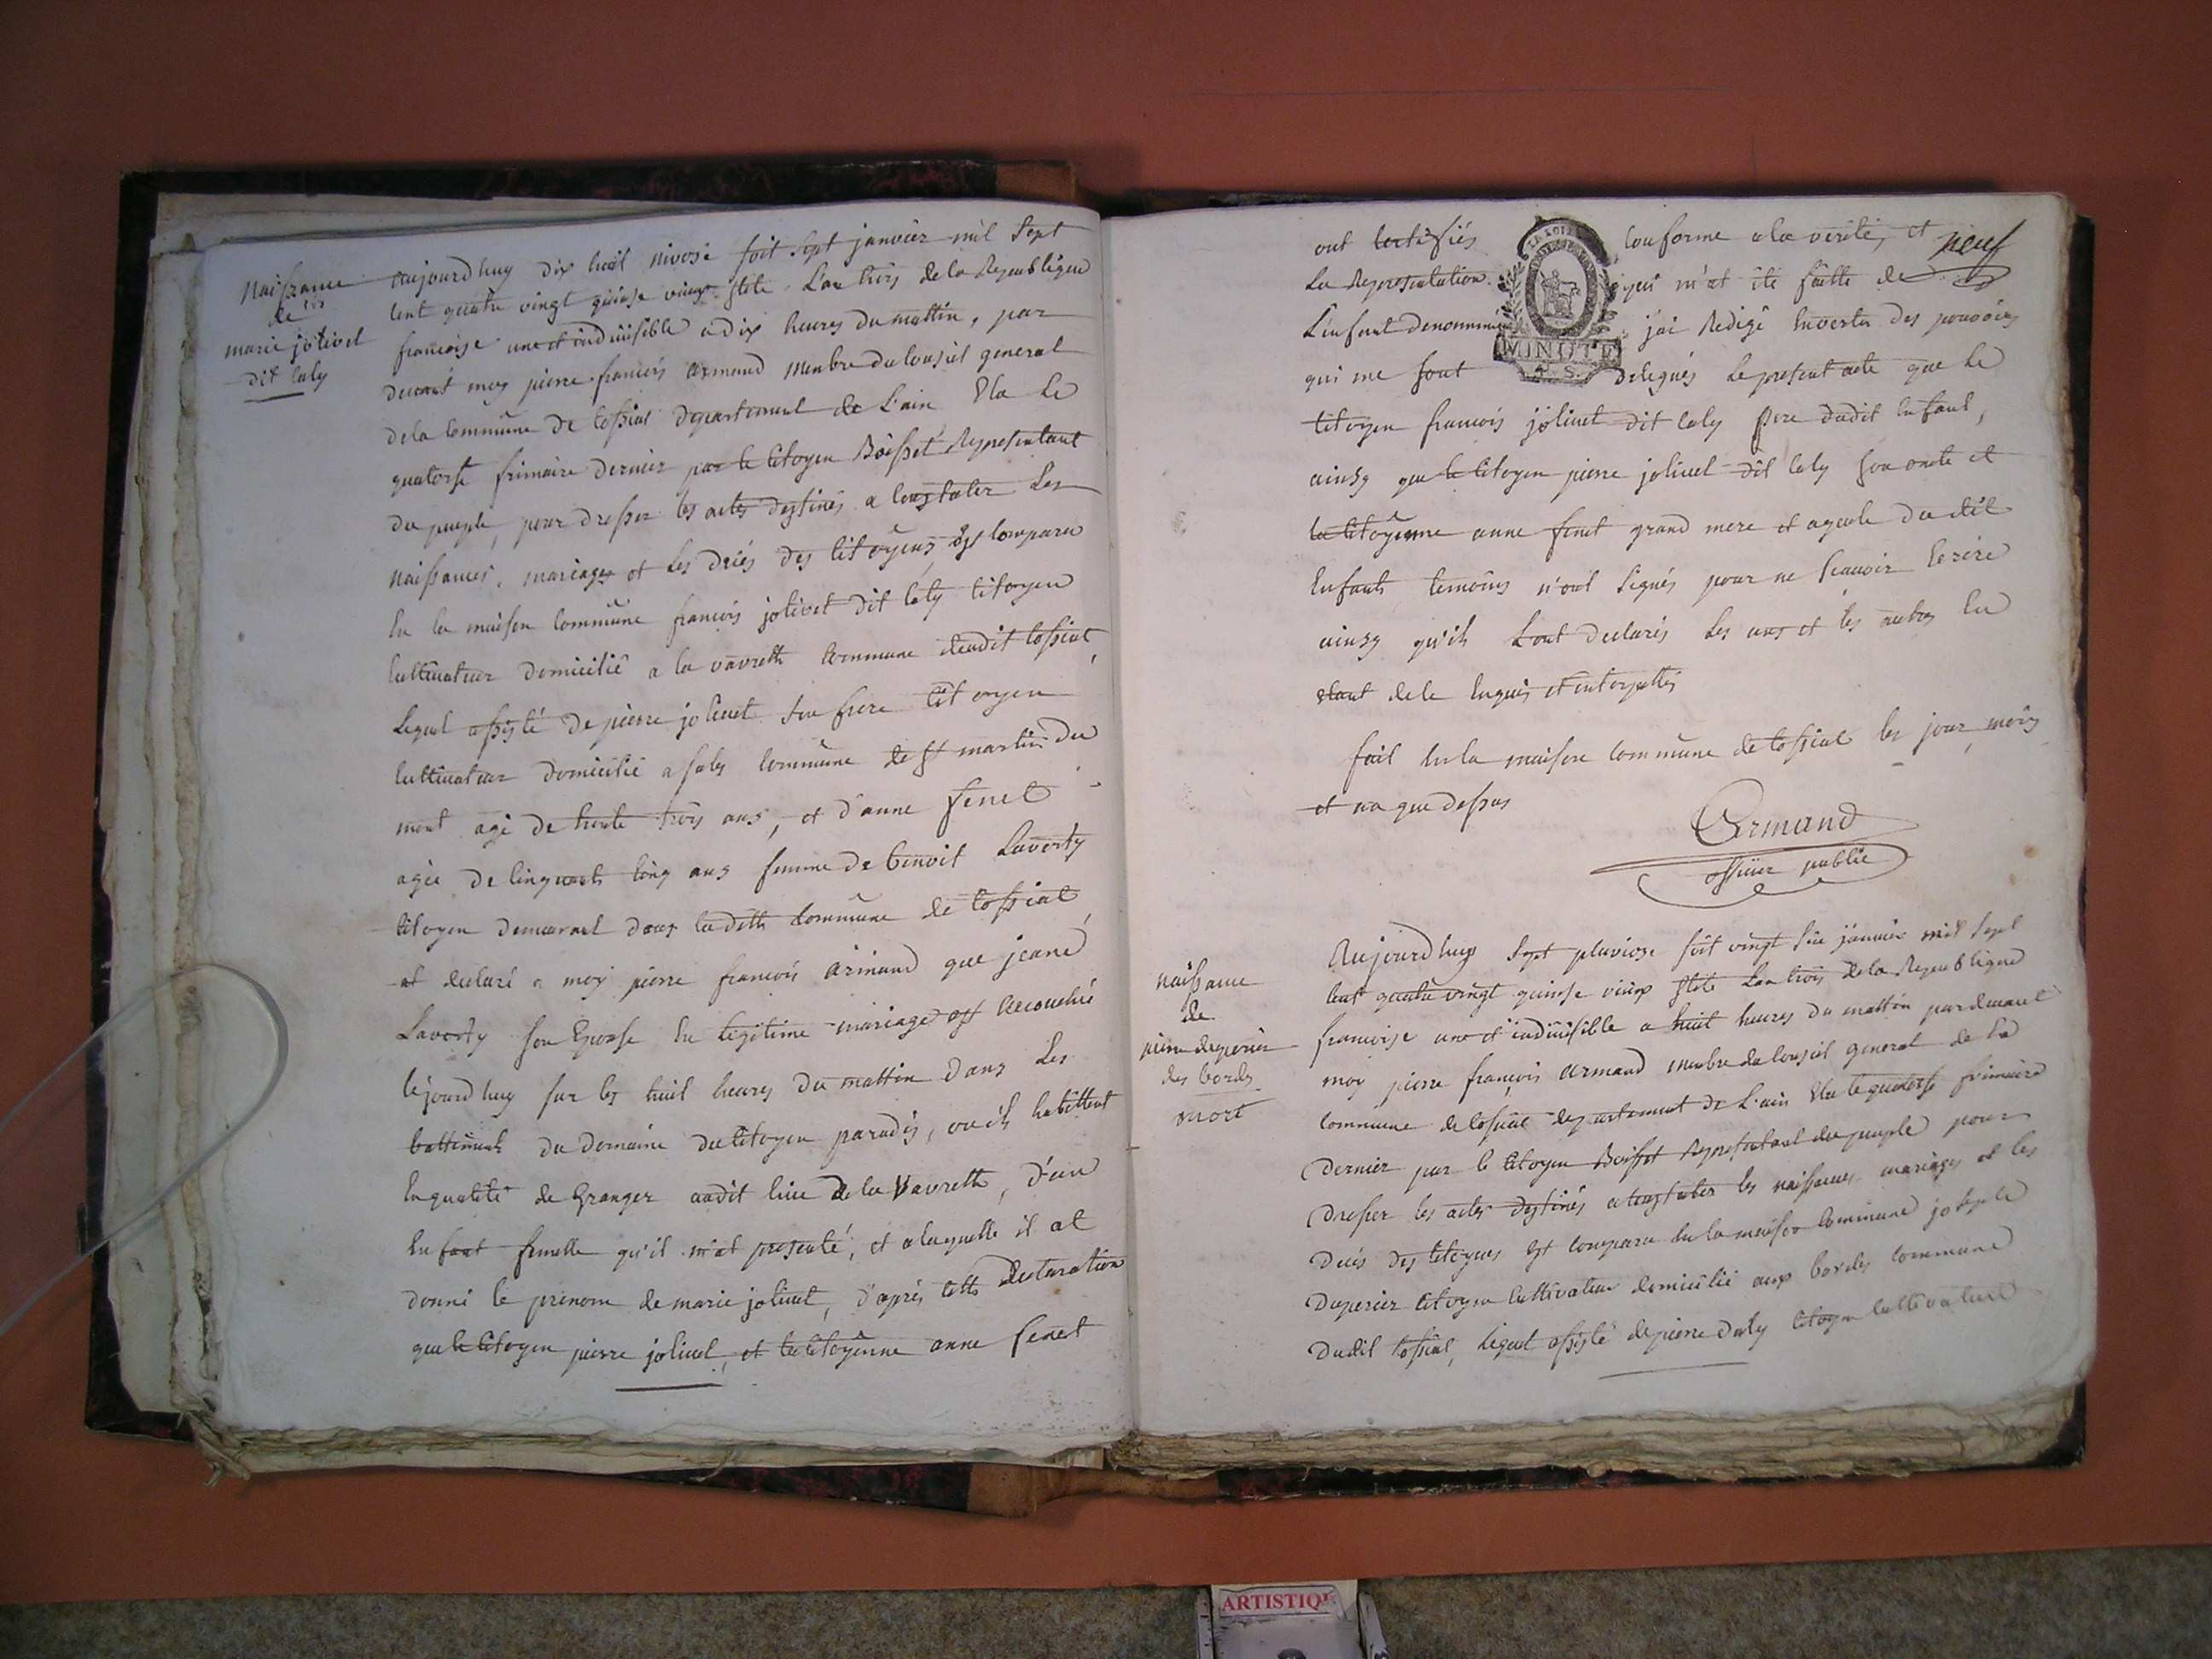 Naissance
de
marie jolivet
dit laly
aujourdhuy dix huit nivose soit sept janvier mil sept
cent quatre vingt quinse vieux stile Lan trois de la Republique
francoise une et indivisible a dix heures du mattin, par
devant moy pierre francois armand membre du Conseil general
de la commune de tossiat departement de L'ain Elu le
quatorse frimaire dernier par le citoyen Boisset Representant
du peuple, pour dresser les actes destinés a constater les
naissances, mariages et les decés des citoyens est comparu
en la maison commune francois jolivet dit laly citoyen
cultivateur domicilié a la vavrette commune dudit tossiat,
lequel assisté de pierre jolivet son frere citoyen
cultivateur domicilié a commune de st martin du
mont agé de trente trois ans, et d'anne fenet
agée de cinquante cinq ans femme de benoit Laverty
citoyen demeurant dans laditte commune de tossiat,
at declaré a moy pierre francois armand que jeane
Laverty son Epouse en legitime mariage est accouchée
cejourdhuy sur les huit heures du mattin dans les
battiments du domaine du citoyen paradis, ou ils habittent
en qualité de Granger audit lieu de la Vavrette, d'un
enfant femelle qu'il m'at presenté, et a laquelle il at
donné le prenom de marie jolivet, d'aprés cette declaration
que le citoyen pierre jolivet, et la citoyenne anne fenet
neuf
ont certifiés conforme a la verité, et
La Representation qui m'at été faitte de
L'enfant denommé j'ai Redigé en vertu des pouvoirs
qui me sont delegués le present acte que le
citoyen francois jolivet dit laly pere dudit enfant,
ainsy que le citoyen pierre jolivet dit laly son oncle et
la citoyenne anne fenet grand mere et ayeule du dit
enfant temoins n'ont signés pour ne scavoir Ecrire
ainsy qu'ils L'ont declarés les uns et les autres en
etant de ce enquis et interpellés
fait en la maison commune de tossiat les jour mois
et an que dessus
Armand
officier public
naissance
de
pierre duperier
des bordes
mort
Aujourdhuy sept pluviose soit vingt six janvier mil sept
cent quatre vingt quinse vieux stile Lan trois de la Republique
francoise une et indivisible a huit heures du mattin pardevant
moy pierre françois armand membre du Conseil general de la
commune de tossiat departement de L'ain Elu le quatorse frimaire
dernier par le citoyen Boisset Representant du peuple pour
dresser les actes destinés a constater les naissances mariages et les
decés des citoyens est comparu en la maison commune joseph
Duperier citoyen cultivateur domicilié aux bordes commune
dudit tossiat, lequel assisté de pierre citoyen cultivateur
MINOTE
ARTISTIQ